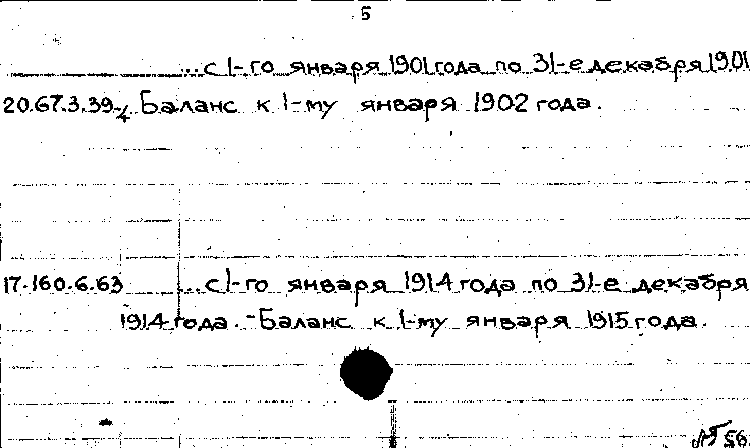 5
...с 1-го января 1901 года по 31-е декабря 1901
20.67.3.39-4 Баланс к 1-му января 1902 года.
17.160.6.63 ...с 1-го января 1914 года по 31-е декабря
1914 года. - Баланс к 1-му января 1915 года.
56